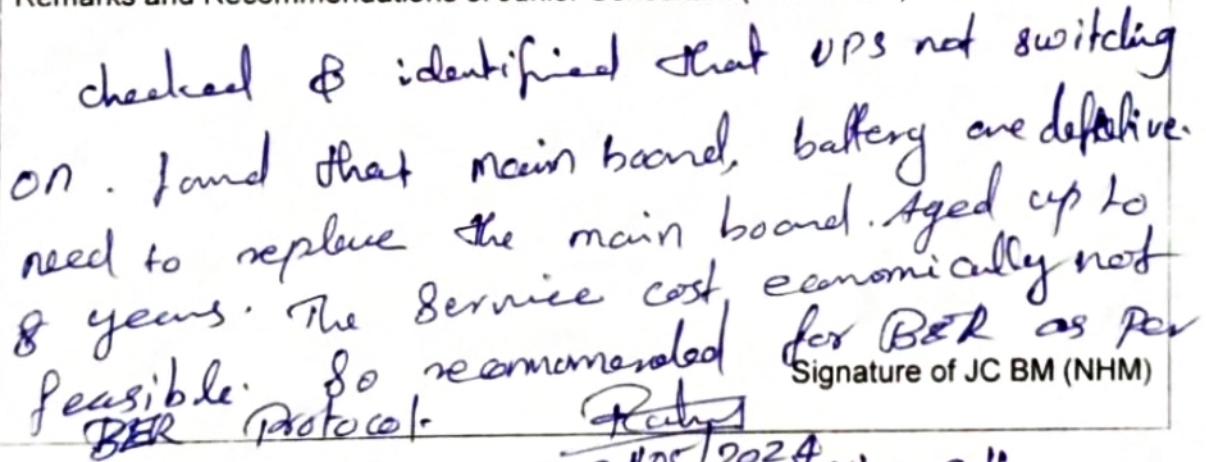 checked & identified that UPS not switching
on. found that main board, battery are defective.
need to replace the main board. Aged up to
8 years. The Service cost, economically not
feasible. So recommended for BER as Per
Signature of JC BM (NHM)
BER Protocol.
2024